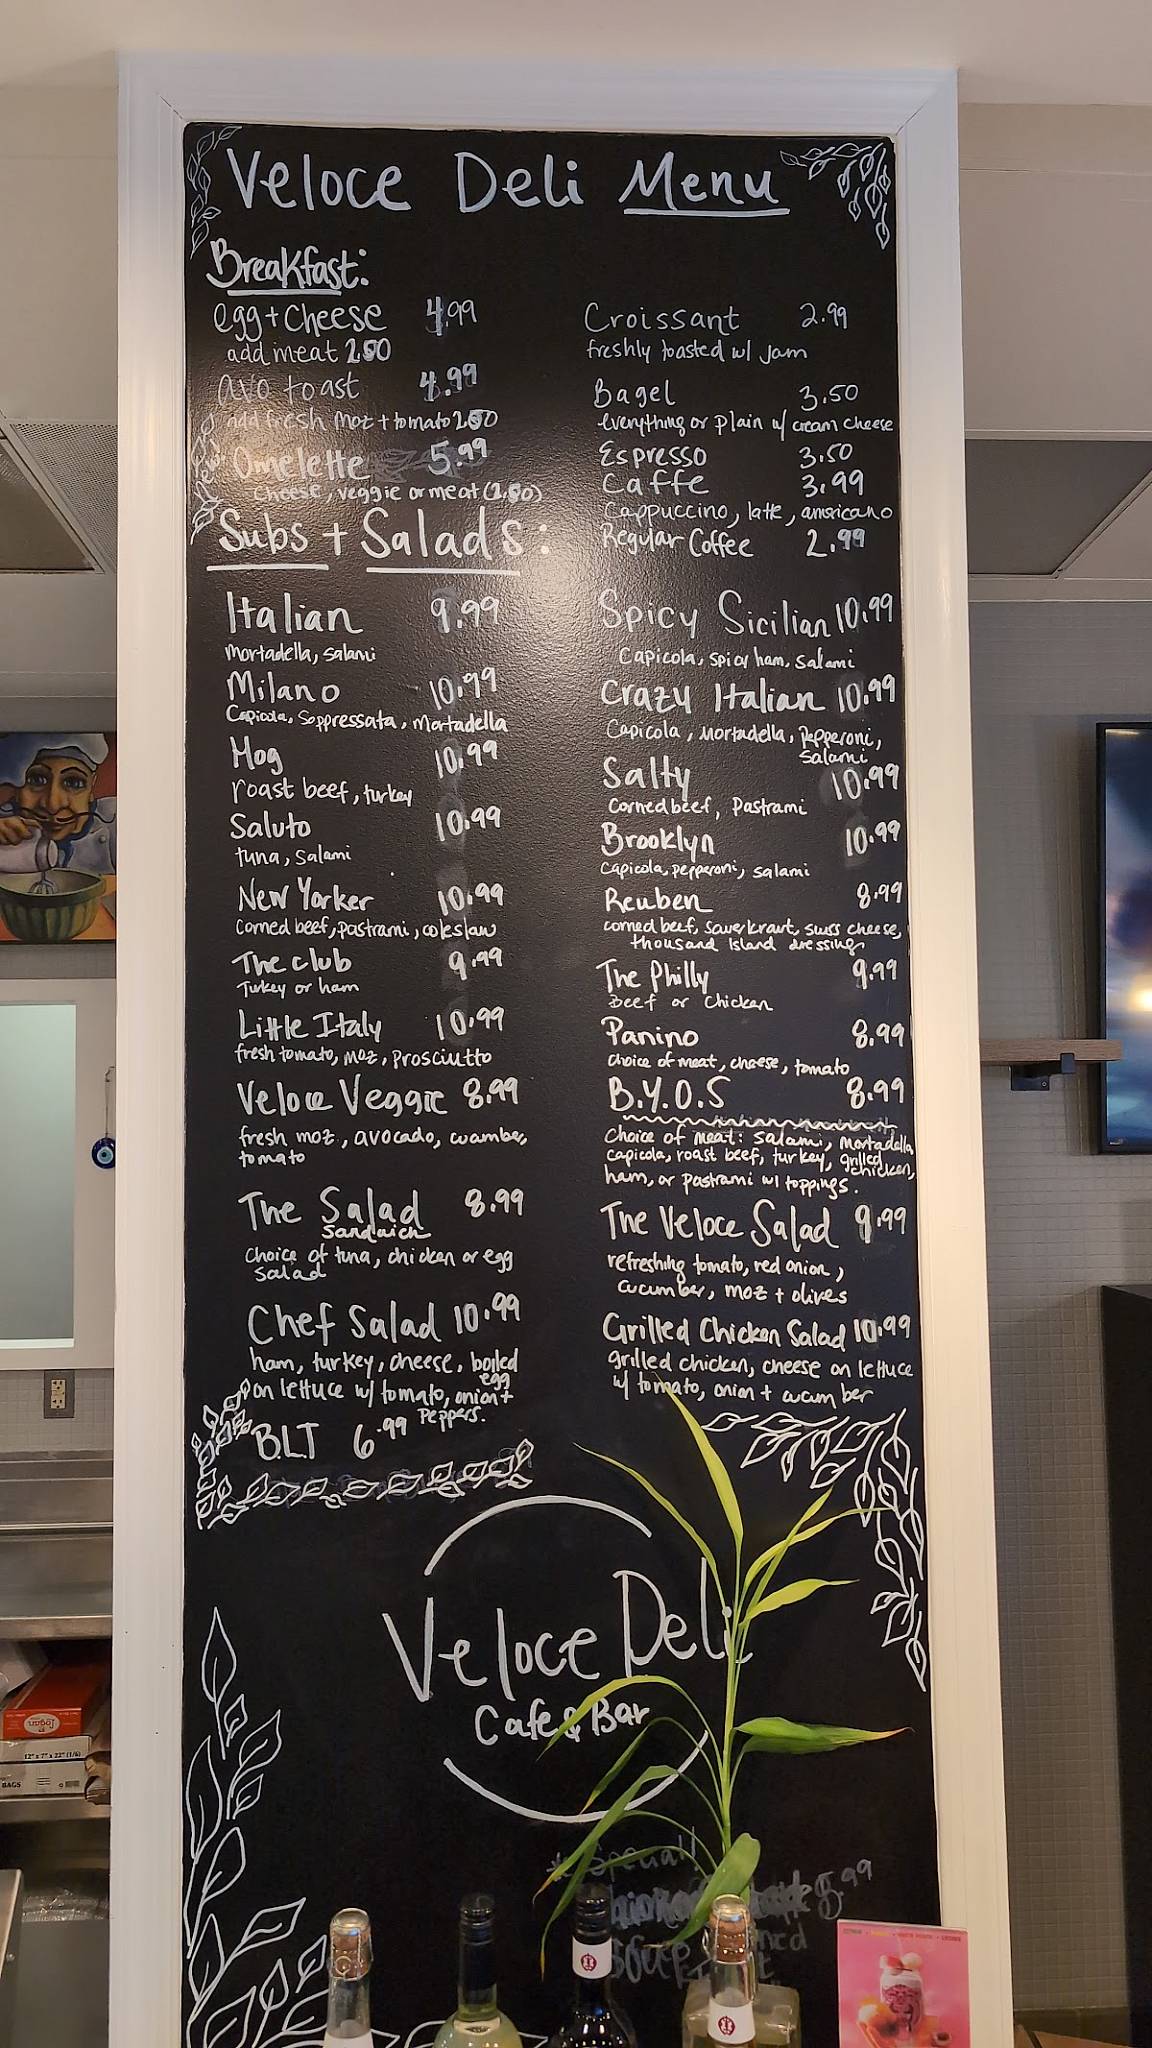 Veloce Deli Menu
Breakfast:
egg + cheese 4.99
add meat 2.50
avo toast 4.99
add fresh moz + tomato 2.50
Omelette 5.99
cheese, veggie or meat (2.50)
Croissant 2.99
freshly toasted w/ jam
Bagel 3.50
everything or plain w/ cream cheese
Espresso 3.50
Caffe 3.99
Cappuccino, latte, americano
Regular Coffee 2.99
Subs + Salads:
Italian 9.99
Mortadella, salami
Milano 10.99
Capicola, Soppressata, Mortadella
Hog 10.99
roast beef, turkey
Saluto 10.99
tuna, salami
New Yorker 10.99
Corned beef, pastrami, coleslaw
The club 9.99
Turkey or ham
Little Italy 10.99
fresh tomato, moz, prosciutto
Veloce Veggie 8.99
fresh moz., avocado, cucumber,
tomato
The Salad 8.99
Sandwich
Choice of tuna, chicken or egg
salad
Chef Salad 10.99
ham, turkey, cheese, boiled
egg
on lettuce w/ tomato, onion +
Peppers.
B.L.T 6.99
Spicy Sicilian 10.99
Capicola, spicy ham, salami
Crazy Italian 10.99
Capicola, Mortadella, Pepperoni,
Salami
Salty 10.99
Corned beef, Pastrami
Brooklyn 10.99
Capicola, pepperoni, salami
Reuben 8.99
corned beef, sauerkraut, swiss cheese,
thousand island dressing
The Philly 9.99
Beef or Chicken
Panino 8.99
choice of meat, cheese, tomato
B.Y.O.S 8.99
Choice of meat: salami, mortadella
capicola, roast beef, turkey, grilled
chicken,
ham, or pastrami w/ toppings.
The Veloce Salad 9.99
refreshing tomato, red onion,
cucumber, moz + olives
Grilled Chicken Salad 10.99
grilled chicken, cheese on lettuce
w/ tomato, onion + cucumber
Veloce Deli
Cafe & Bar
Special!
.99
12" x 7" x 22" (1/6)
BAGS